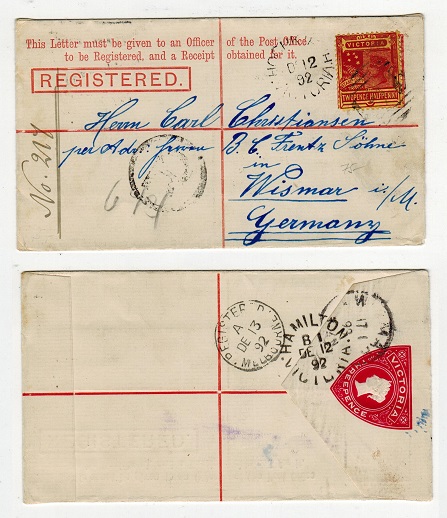 This Letter must be given to an Officer of the Post Office
to be Registered, and a Receipt obtained for it.
REGISTERED.
VICTORIA
TWOPENCE HALFPENNY
DE 12
92
Herrn Carl Christiansen
per Adr. Herren B. C. Frentz Söhne
in
Wismar i/M.
Germany
No. 217
REGISTERED MELBOURNE
A
DE 13
92
HAMILTON
B 1
DE 12
92
VICTORIA
VICTORIA
THREEPENCE